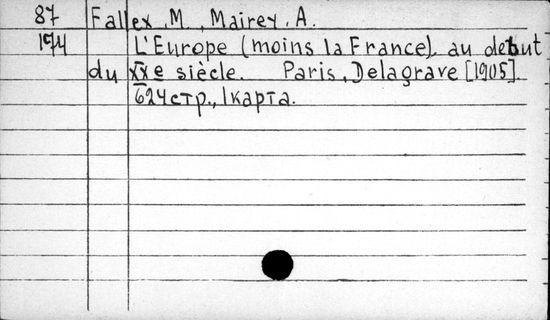 87 Fallex, M., Mairey, A.
174 L'Europe (moins la France) au debut
du XXe siècle. Paris, Delagrave [1905].
624 стр., 1 карта.